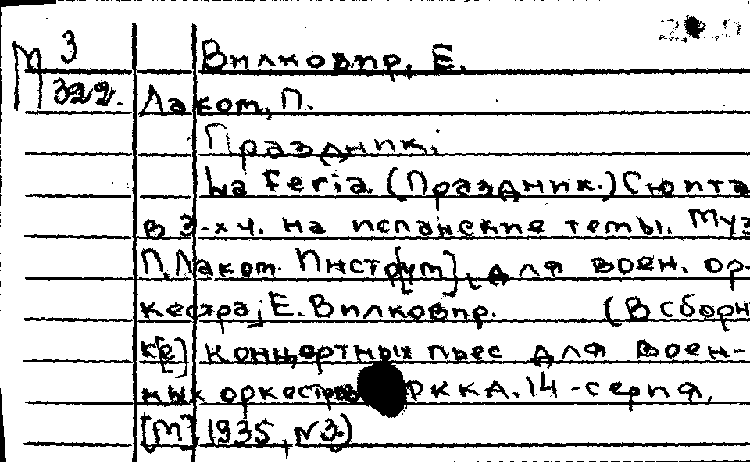 М 3 Вилковир, Е.
322. Лаком, П.
Праздник.
La Feria. (Праздник.) Сюита
в 3-х ч. на испанские темы. Муз
П. Лаком. Инстр[ум]. для воен. ор-
кестра; Е. Вилковир. (В сборн
к[е] концертных пьес для воен-
ных оркестров РККА. 14-серия,
[М] 1935, №3.)